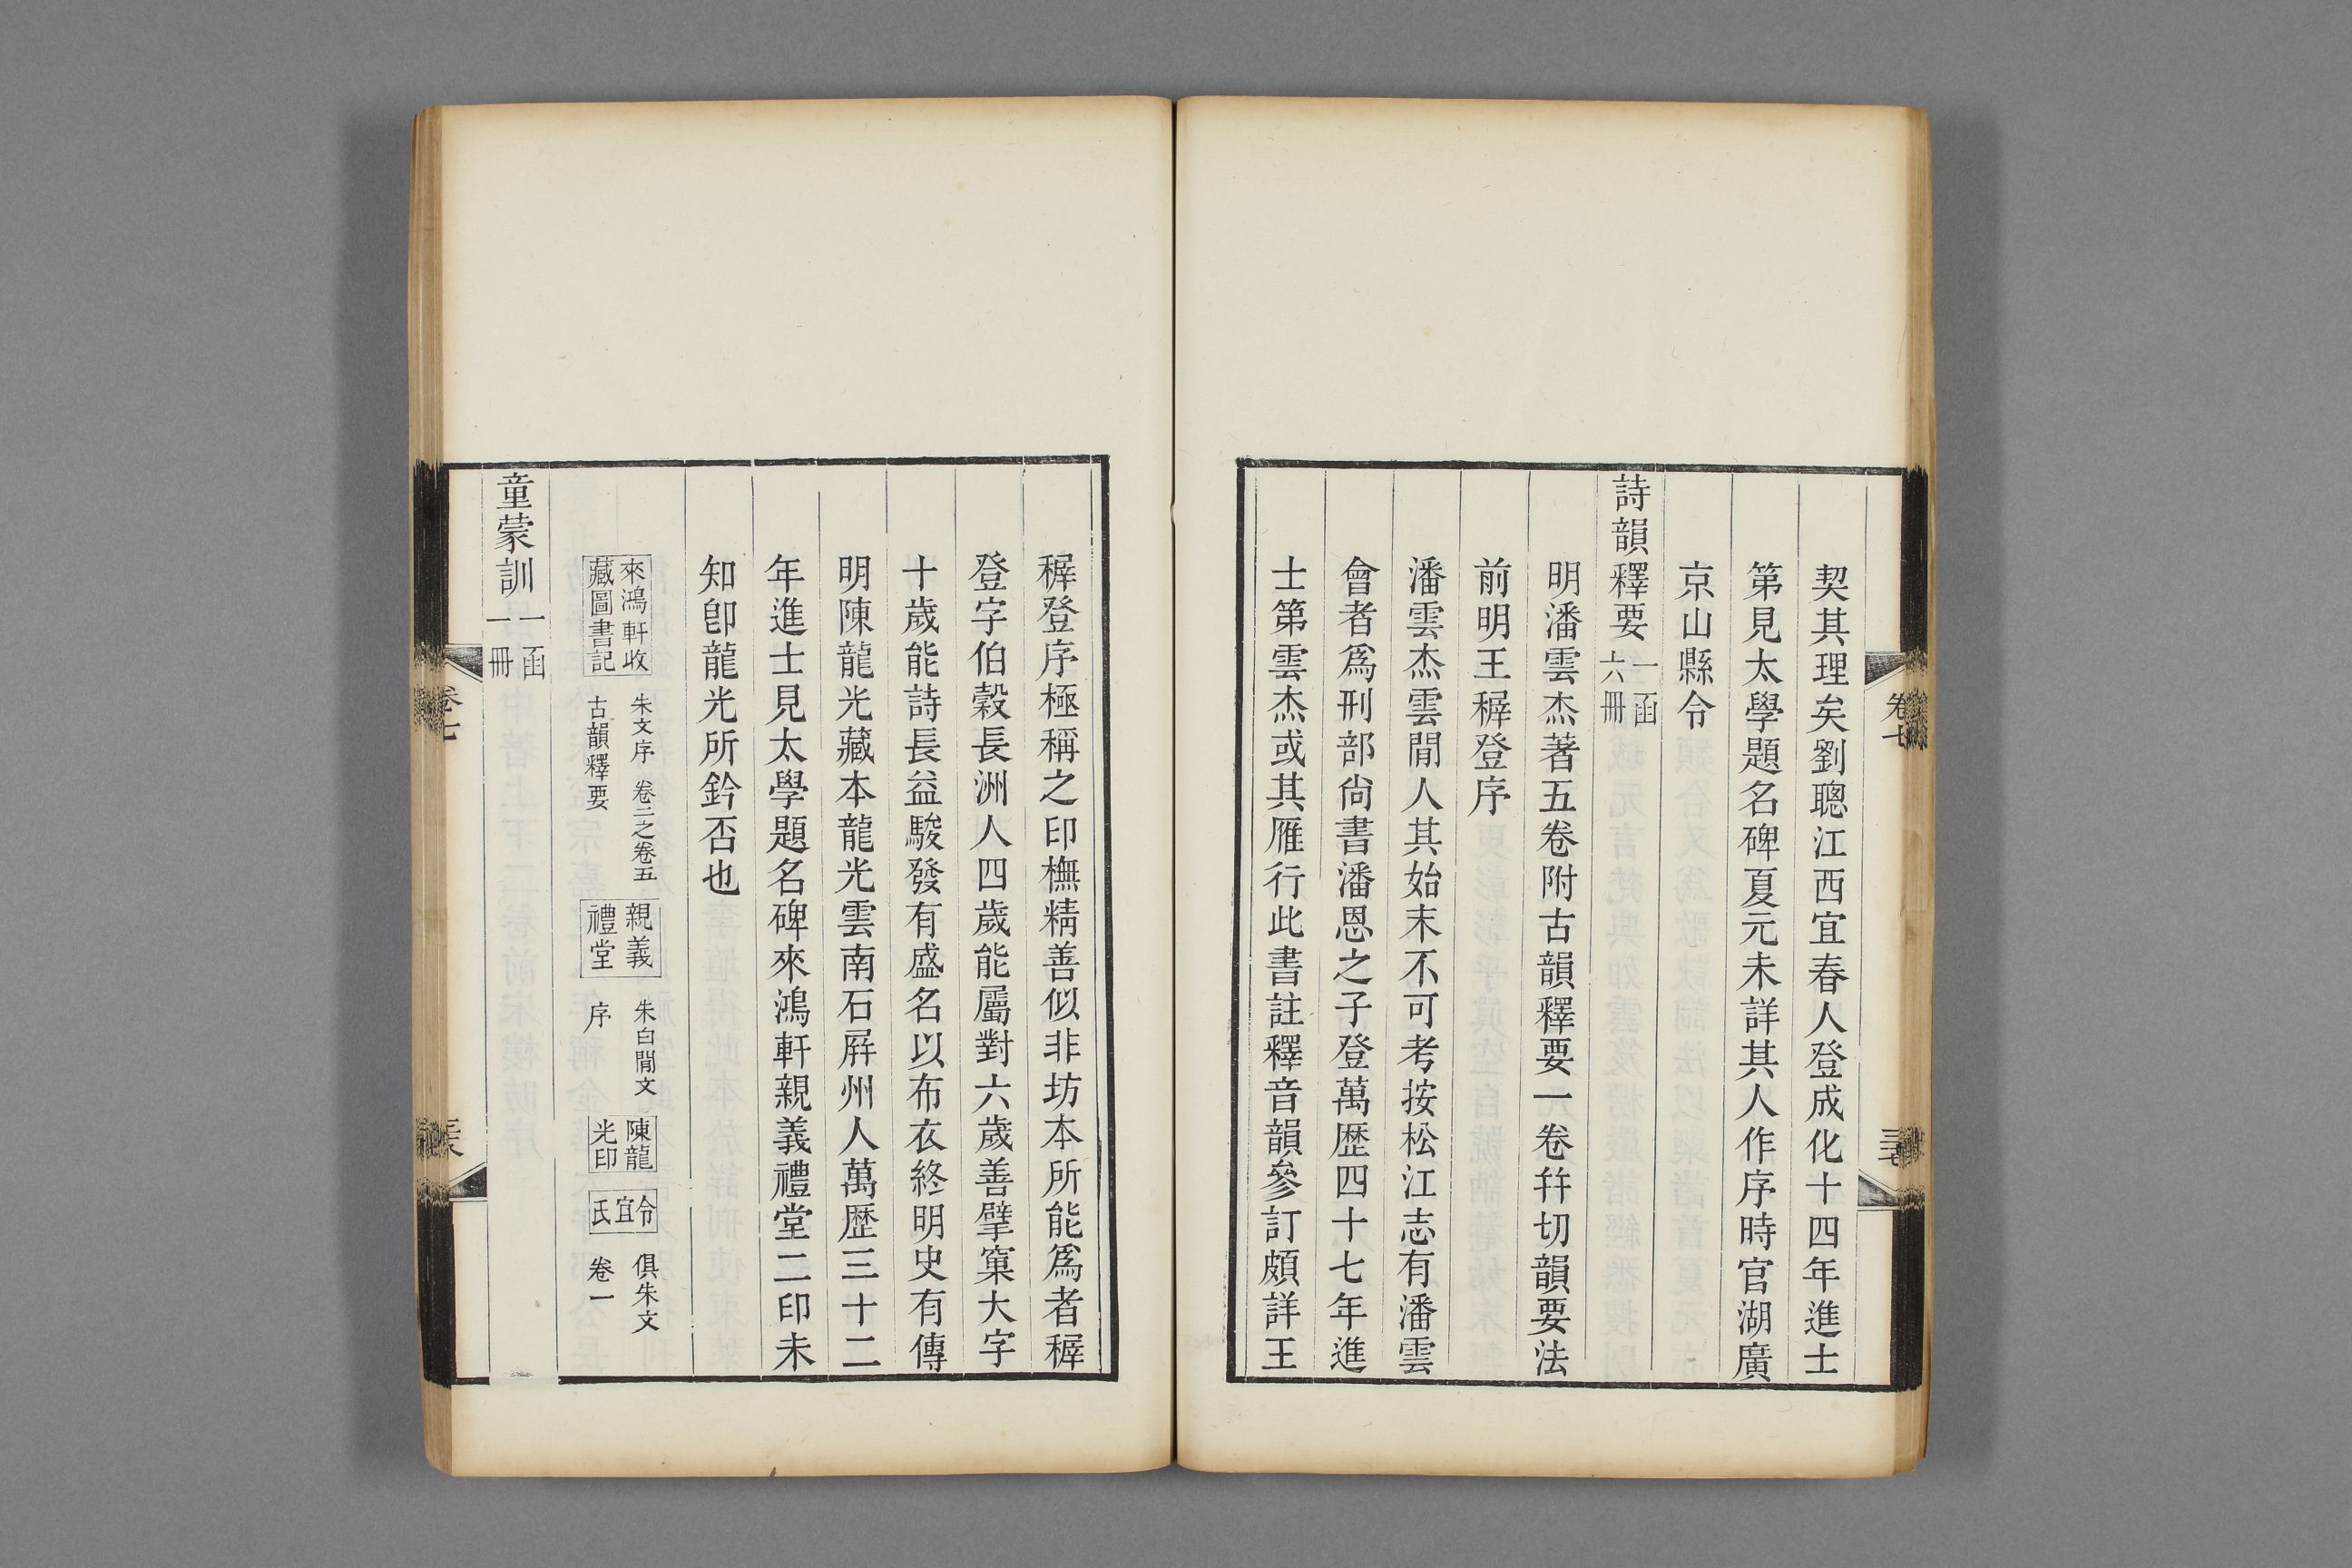 契其理矣劉聰江西宜春人登成化十四年進士
第見太學題名碑夏元未詳其人作序時官湖廣
京山縣令
詩韻釋要一函六冊
明潘雲杰著五卷附古韻釋要一卷幷切韻要法
前明王穉登序
潘雲杰雲間人其始末不可考按松江志有潘雲
會者爲刑部尙書潘恩之子登萬歷四十七年進
士第雲杰或其雁行此書註釋音韻參訂頗詳王
卷七
三七
穉登序極稱之印橅精善似非坊本所能爲者穉
登字伯穀長洲人四歲能屬對六歲善擘窠大字
十歲能詩長益駿發有盛名以布衣終明史有傳
明陳龍光藏本龍光雲南石屛州人萬歷三十二
年進士見太學題名碑來鴻軒親義禮堂二印未
知卽龍光所鈐否也
來鴻軒收藏圖書記 朱文序 卷二之卷五 古韻釋要 親義禮堂 朱白間文 序 陳龍光印 令宜氏 俱朱文 卷一
童蒙訓一函一冊
卷七